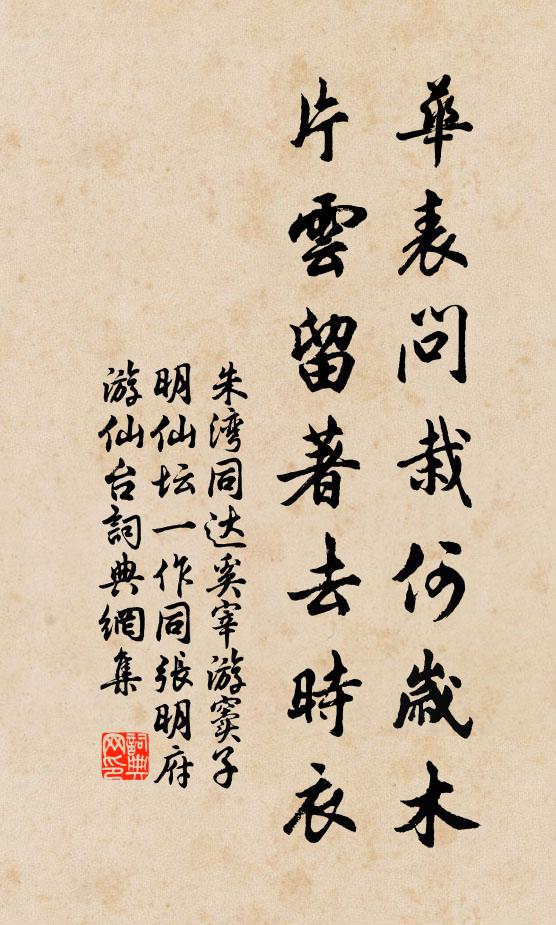 華表問栽何歲木
片雲留著去時衣
朱湾同达奚宰游窦子
明仙坛一作同張明府
游仙台詞典網集
詞典網印